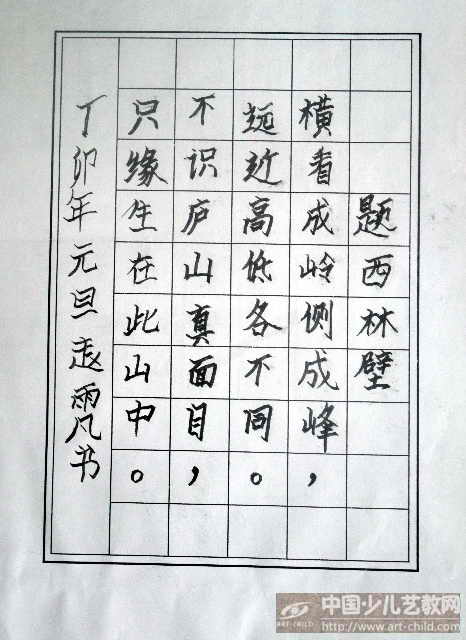 题西林壁
横看成岭侧成峰，
远近高低各不同。
不识庐山真面目，
只缘生在此山中。
丁卯年元旦 书
中国少儿艺教网
ART-CHILD
http://www.art-child.com